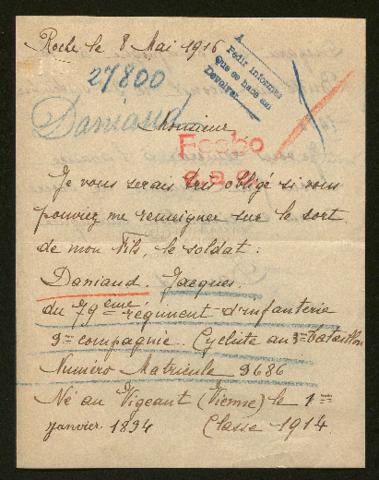 Roche le 8 Mai 1916
27800
Pedir informes
Que se hace en
Devolver
Daniaud
Monsieur
Je vous serais très obligé si vous
pouviez me renseigner sur le sort
de mon fils, le soldat :
Daniaud Jacques
du 79ème régiment d'infanterie
9e compagnie. Cycliste au 3e bataillon
Numéro Matricule 9686
Né au Vigeant (Vienne) le 1er
janvier 1894 Classe 1914